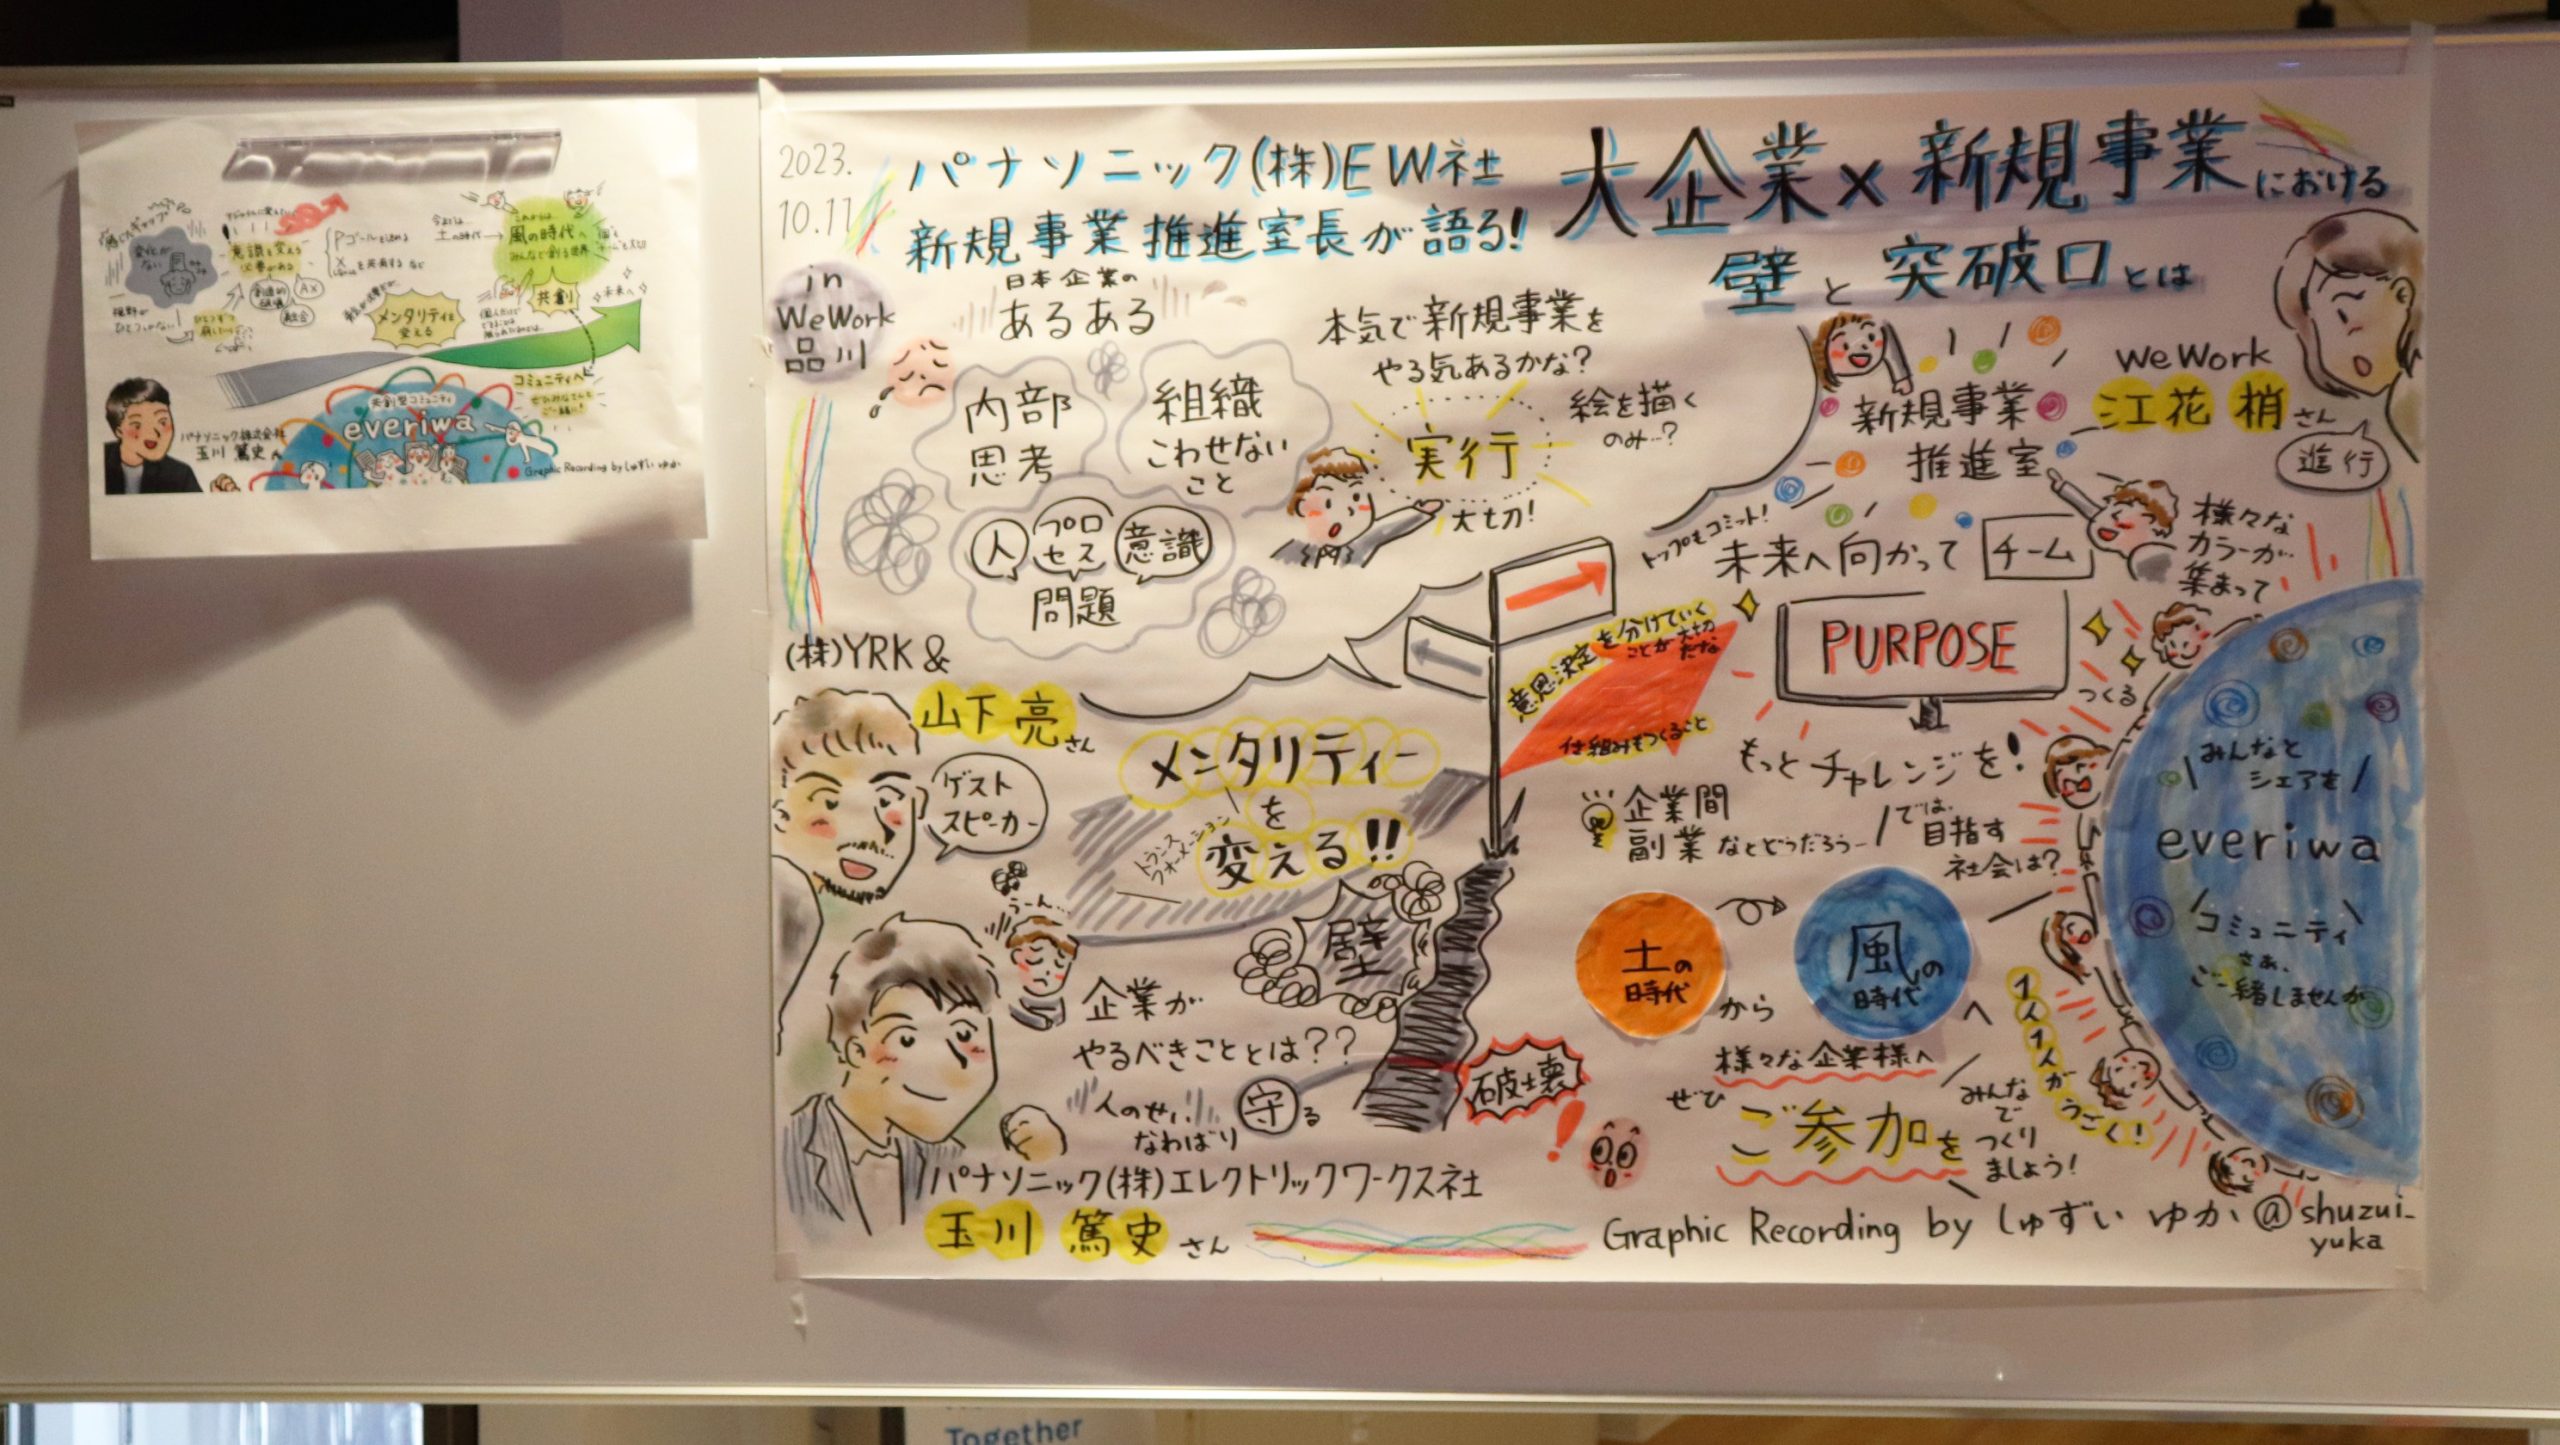 変化が
ない
意識を変える
必要がある
今までは…
土の時代
これからは…
風の時代へ
みんなで創る世界
共創
未来へ
メンタリティを
変える
コミュニティへ
ぜひみなさんも
ご一緒に!
共創型コミュニティ
everiwa
パナソニック株式会社
玉川 篤史
Graphic Recording by しゅずい ゆか
2023.
10.11
in
WeWork
品川
パナソニック(株)EW社
新規事業推進室長が語る!
大企業×新規事業における
壁と突破口とは
日本企業の
あるある
内部
思考
組織
こわせない
こと
人
プロ
セス
意識
問題
本気で新規事業を
やる気あるかな?
実行
大切!
絵を描く
のみ…?
新規事業
推進室
WeWork
江花 梢さん
進行
トップもコミット!
未来へ向かって
チーム
様々な
カラーが
集まって
PURPOSE
つくる
意思決定を分けていく
ことが大切
だな
仕組みをつくること
もっとチャレンジを!
(株)YRK&
山下 亮さん
ゲスト
スピーカー
メンタリティーを
変える!!
トランス
フォーメーション
企業間
副業などどうだろう
では、
目指す
社会は?
土の
時代
から
風の
時代
へ
みんなと
シェアを
everiwa
コミュニティ
さあ、
ご一緒しませんか
1人1人がうごく!
うーん…
企業が
やるべきこととは??
壁
人のせい
なわばり
守る
破壊
様々な企業様へ
ぜひ
ご参加を
みんな
で
つくり
ましょう!
パナソニック(株)エレクトリックワークス社
玉川 篤史さん
Graphic Recording by しゅずい ゆか @shuzui_
yuka
Together